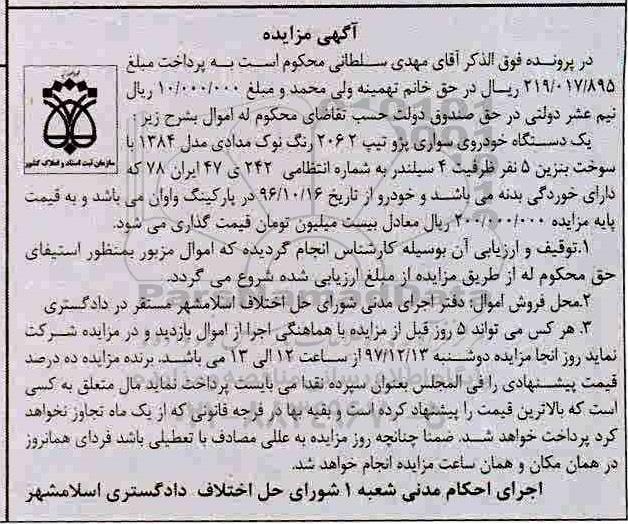 آگهی مزایده
در پرونده فوق الذکر آقای مهدی سلطانی محکوم است به پرداخت مبلغ
۲۱۹/۰۱۷/۸۹۵ ریال در حق خانم تهمینه ولی محمد و مبلغ ۱۰/۰۰۰/۰۰۰ ریال
نیم عشر دولتی در حق صندوق دولت حسب تقاضای محکوم له اموال بشرح زیر :
یک دستگاه خودروی سواری پژو تیپ ۲ ۲۰۶ رنگ نوک مدادی مدل ۱۳۸۴ با
سوخت بنزین ۵ نفر ظرفیت ۴ سیلندر به شماره انتظامی ۲۴۲ ی ۴۷ ایران ۷۸ که
سازمان ثبت اسناد و املاک کشور
دارای خوردگی بدنه می باشد و خودرو از تاریخ ۹۶/۱۰/۱۶ در پارکینگ واوان می باشد و به قیمت
پایه مزایده ۲۰۰/۰۰۰/۰۰۰ ریال معادل بیست میلیون تومان قیمت گذاری می شود.
۱.توقیف و ارزیابی آن بوسیله کارشناس انجام گردیده که اموال مزبور بمنظور استیفای
حق محکوم له از طریق مزایده از مبلغ ارزیابی شده شروع می گردد.
۲.محل فروش اموال: دفتر اجرای مدنی شورای حل اختلاف اسلامشهر مستقر در دادگستری
۳. هر کس می تواند ۵ روز قبل از مزایده با هماهنگی اجرا از اموال بازدید و در مزایده شرکت
نماید روز انجا مزایده دوشنبه ۹۷/۱۲/۱۳ از ساعت ۱۲ الی ۱۳ می باشد. برنده مزایده ده درصد
قیمت پیشنهادی را فی المجلس بعنوان سپرده نقدا می بایست پرداخت نماید مال متعلق به کسی
است که بالاترین قیمت را پیشنهاد کرده است و بقیه بها در فرجه قانونی که از یک ماه تجاوز نخواهد
کرد پرداخت خواهد شد. ضمنا چنانچه روز مزایده به عللی مصادف با تعطیلی باشد فردای همانروز
در همان مکان و همان ساعت مزایده انجام خواهد شد.
اجرای احکام مدنی شعبه ۱ شورای حل اختلاف دادگستری اسلامشهر